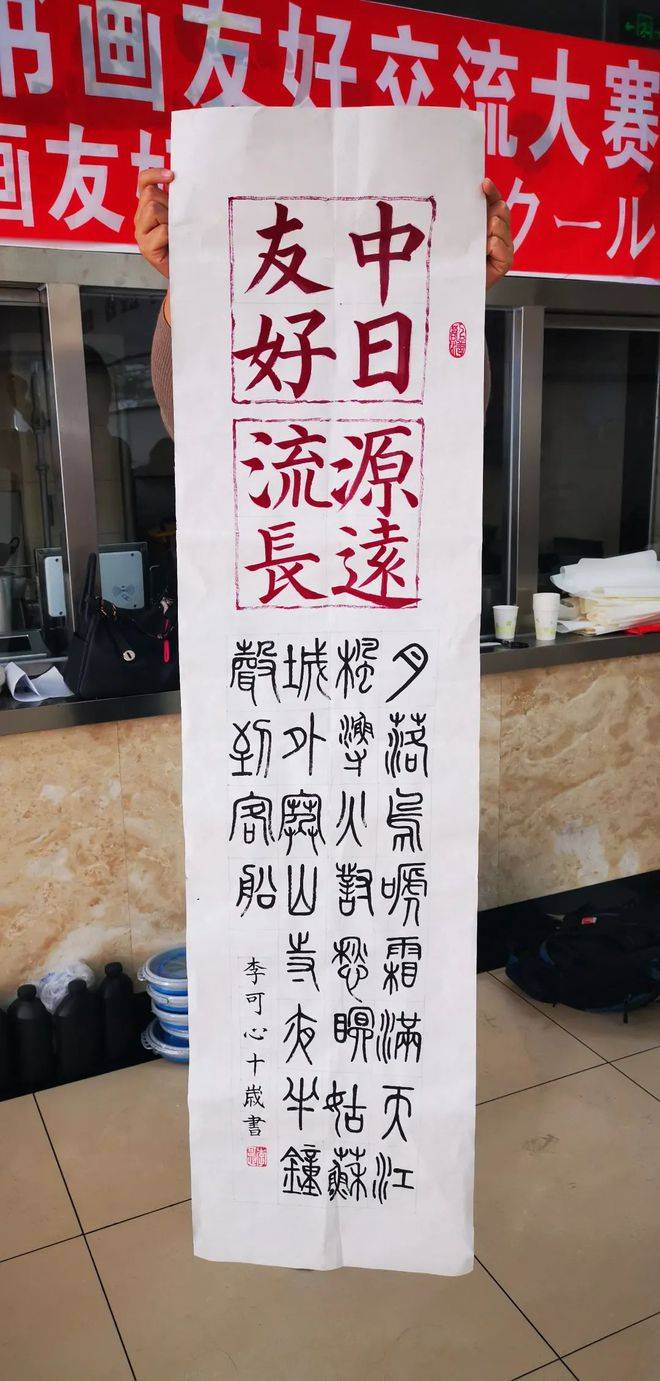 书画友好交流大赛
画友好 クール
中日
友好
源遠
流長
月落烏嗁霜滿天江
楓漁火對愁眠姑蘇
城外寒山寺夜半鐘
聲到客船
李可心十歲書